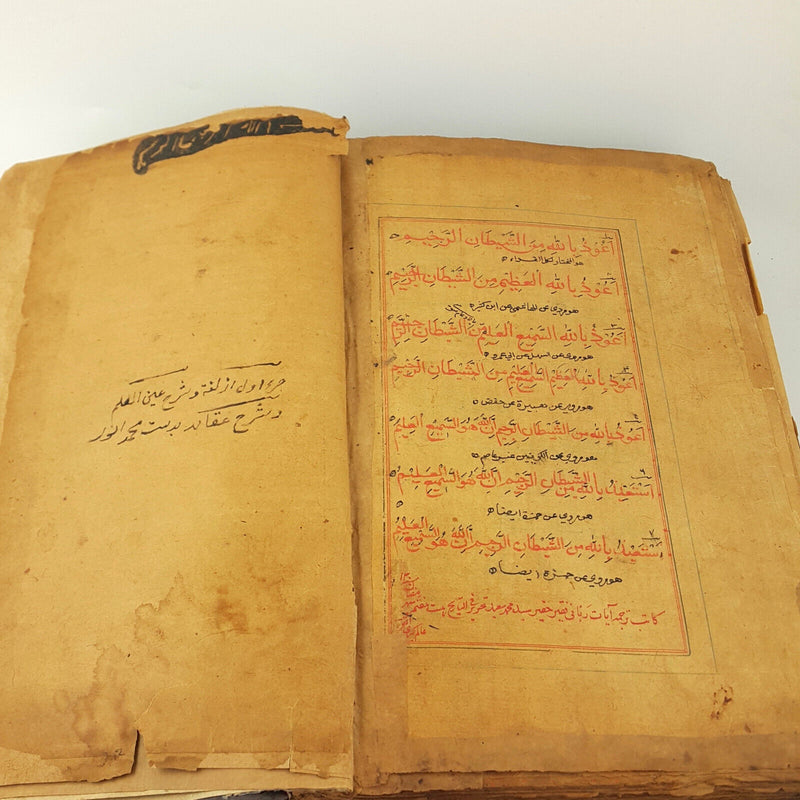 اعوذ بالله من الشيطان الرجيم
هو المختار لكل القراء
اعوذ بالله العظيم من الشيطان الرجيم
هو مروي عن عن ابن كثير
اعوذ بالله السميع العليم من الشيطان الرجيم
هو مروي عن عن ابي عمرو
اعوذ بالله العظيم السميع العليم من الشيطان الرجيم
هو مروي عن عن حفص
اعوذ بالله من الشيطان الرجيم ان الله هو السميع العليم
هو مروي عن
استعيذ بالله من الشيطان الرجيم ان الله هو السميع العليم
هو مروي عن حمزة ايضا
استعيذ بالله من الشيطان الرجيم ان الله هو السميع العليم
هو مروي عن حمزة ايضا
كاتب ترجمه آيات رباني فقير حقير سيد محمد
جزء اول از وشرح عين العلم
وشرح عقائد بدست محمد انور